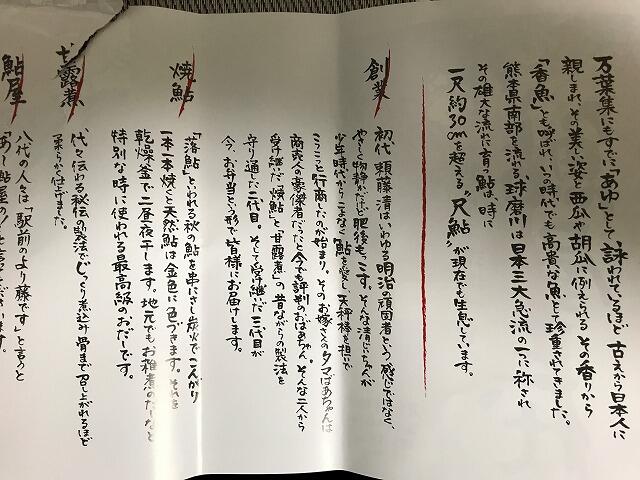 万葉集にもすでに「あゆ」として、詠われているほど古えから日本人に
親しまれ、その美しい姿と西瓜や胡瓜に例えられるその香りから
「香魚」とも呼ばれ、いつの時代でも高貴な魚として珍重されてきました。
熊本県南部を流れる、球磨川は日本三大急流の一つに称され
その雄大な流れに育つ鮎は、時に
一尺約30cmを超える“尺鮎”が現在でも生息しています。
創業
初代、頼藤清はいわゆる明治の頑固者という感じではなく、
やさしく物静かだけど肥後もっこす。そんな清じいちゃんが
少年時代からこよなく鮎を愛し、天秤棒を担いで
こつこつと行商したのが始まり。そのお嫁さんのタマばあちゃんは
商売人の豪傑者だったと今でも評判のおばあちゃん。そんな二人から
受け継いだ“焼鮎”と“甘露煮”の昔ながらの製法を
守り通した二代目。そして受け継いだ三代目が
今、お弁当という形で皆様にお届けします。
焼鮎
「落鮎」といわれる秋の鮎を串にさし炭火でこんがり
一本一本焼くと天然鮎は金色に色づきます。それを
乾燥釜で二昼夜干します。地元でもお雑煮のだしなど
特別な時に使われる最高級のおだしです。
甘露煮
代々伝わる秘伝の製法でじっくり煮込み骨まで召し上がれるほど
柔らかく仕上げました。
鮎屋
八代の人々は「駅前のより藤です」と言うと
「あ〜鮎屋の!」と言